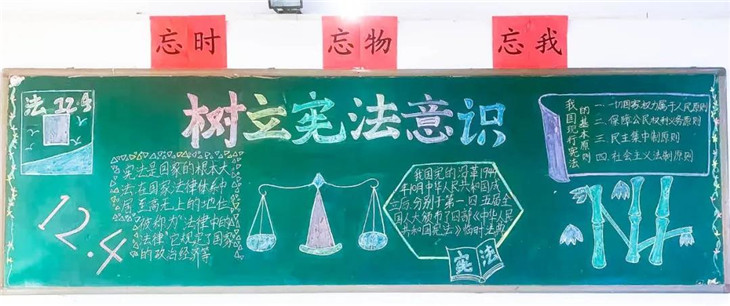 忘时
忘物
忘我
法 12.4
树立宪法意识
宪法是国家的根本大
法,在国家法律体系中
居至高无上的地位
被称为"法律中的
法律"它规定了国家
的政治经济等
12.4
我国宪的沿革1949
年10月中华人民共和国成
立后,分别于第一、四、五届全
国人大颁布了四部《中华人民
共和国宪法》临时法典
宪法
我国现行宪法
的基本原则
一、一切国家权力属于人民原则
二、保障公民权利义务原则
三、民主集中制原则
四、社会主义法制原则